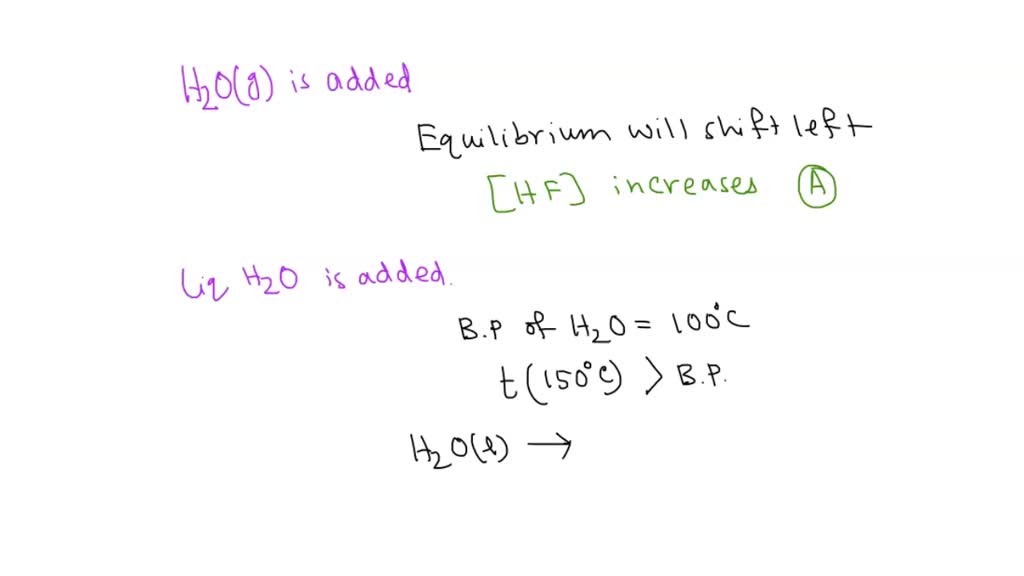 H₂O(g) is added
Equilibrium will shift left
[HF] increases Ⓐ
Liq H₂O is added.
B.P of H₂O = 100°C
t(150°C) > B.P.
H₂O(l) →